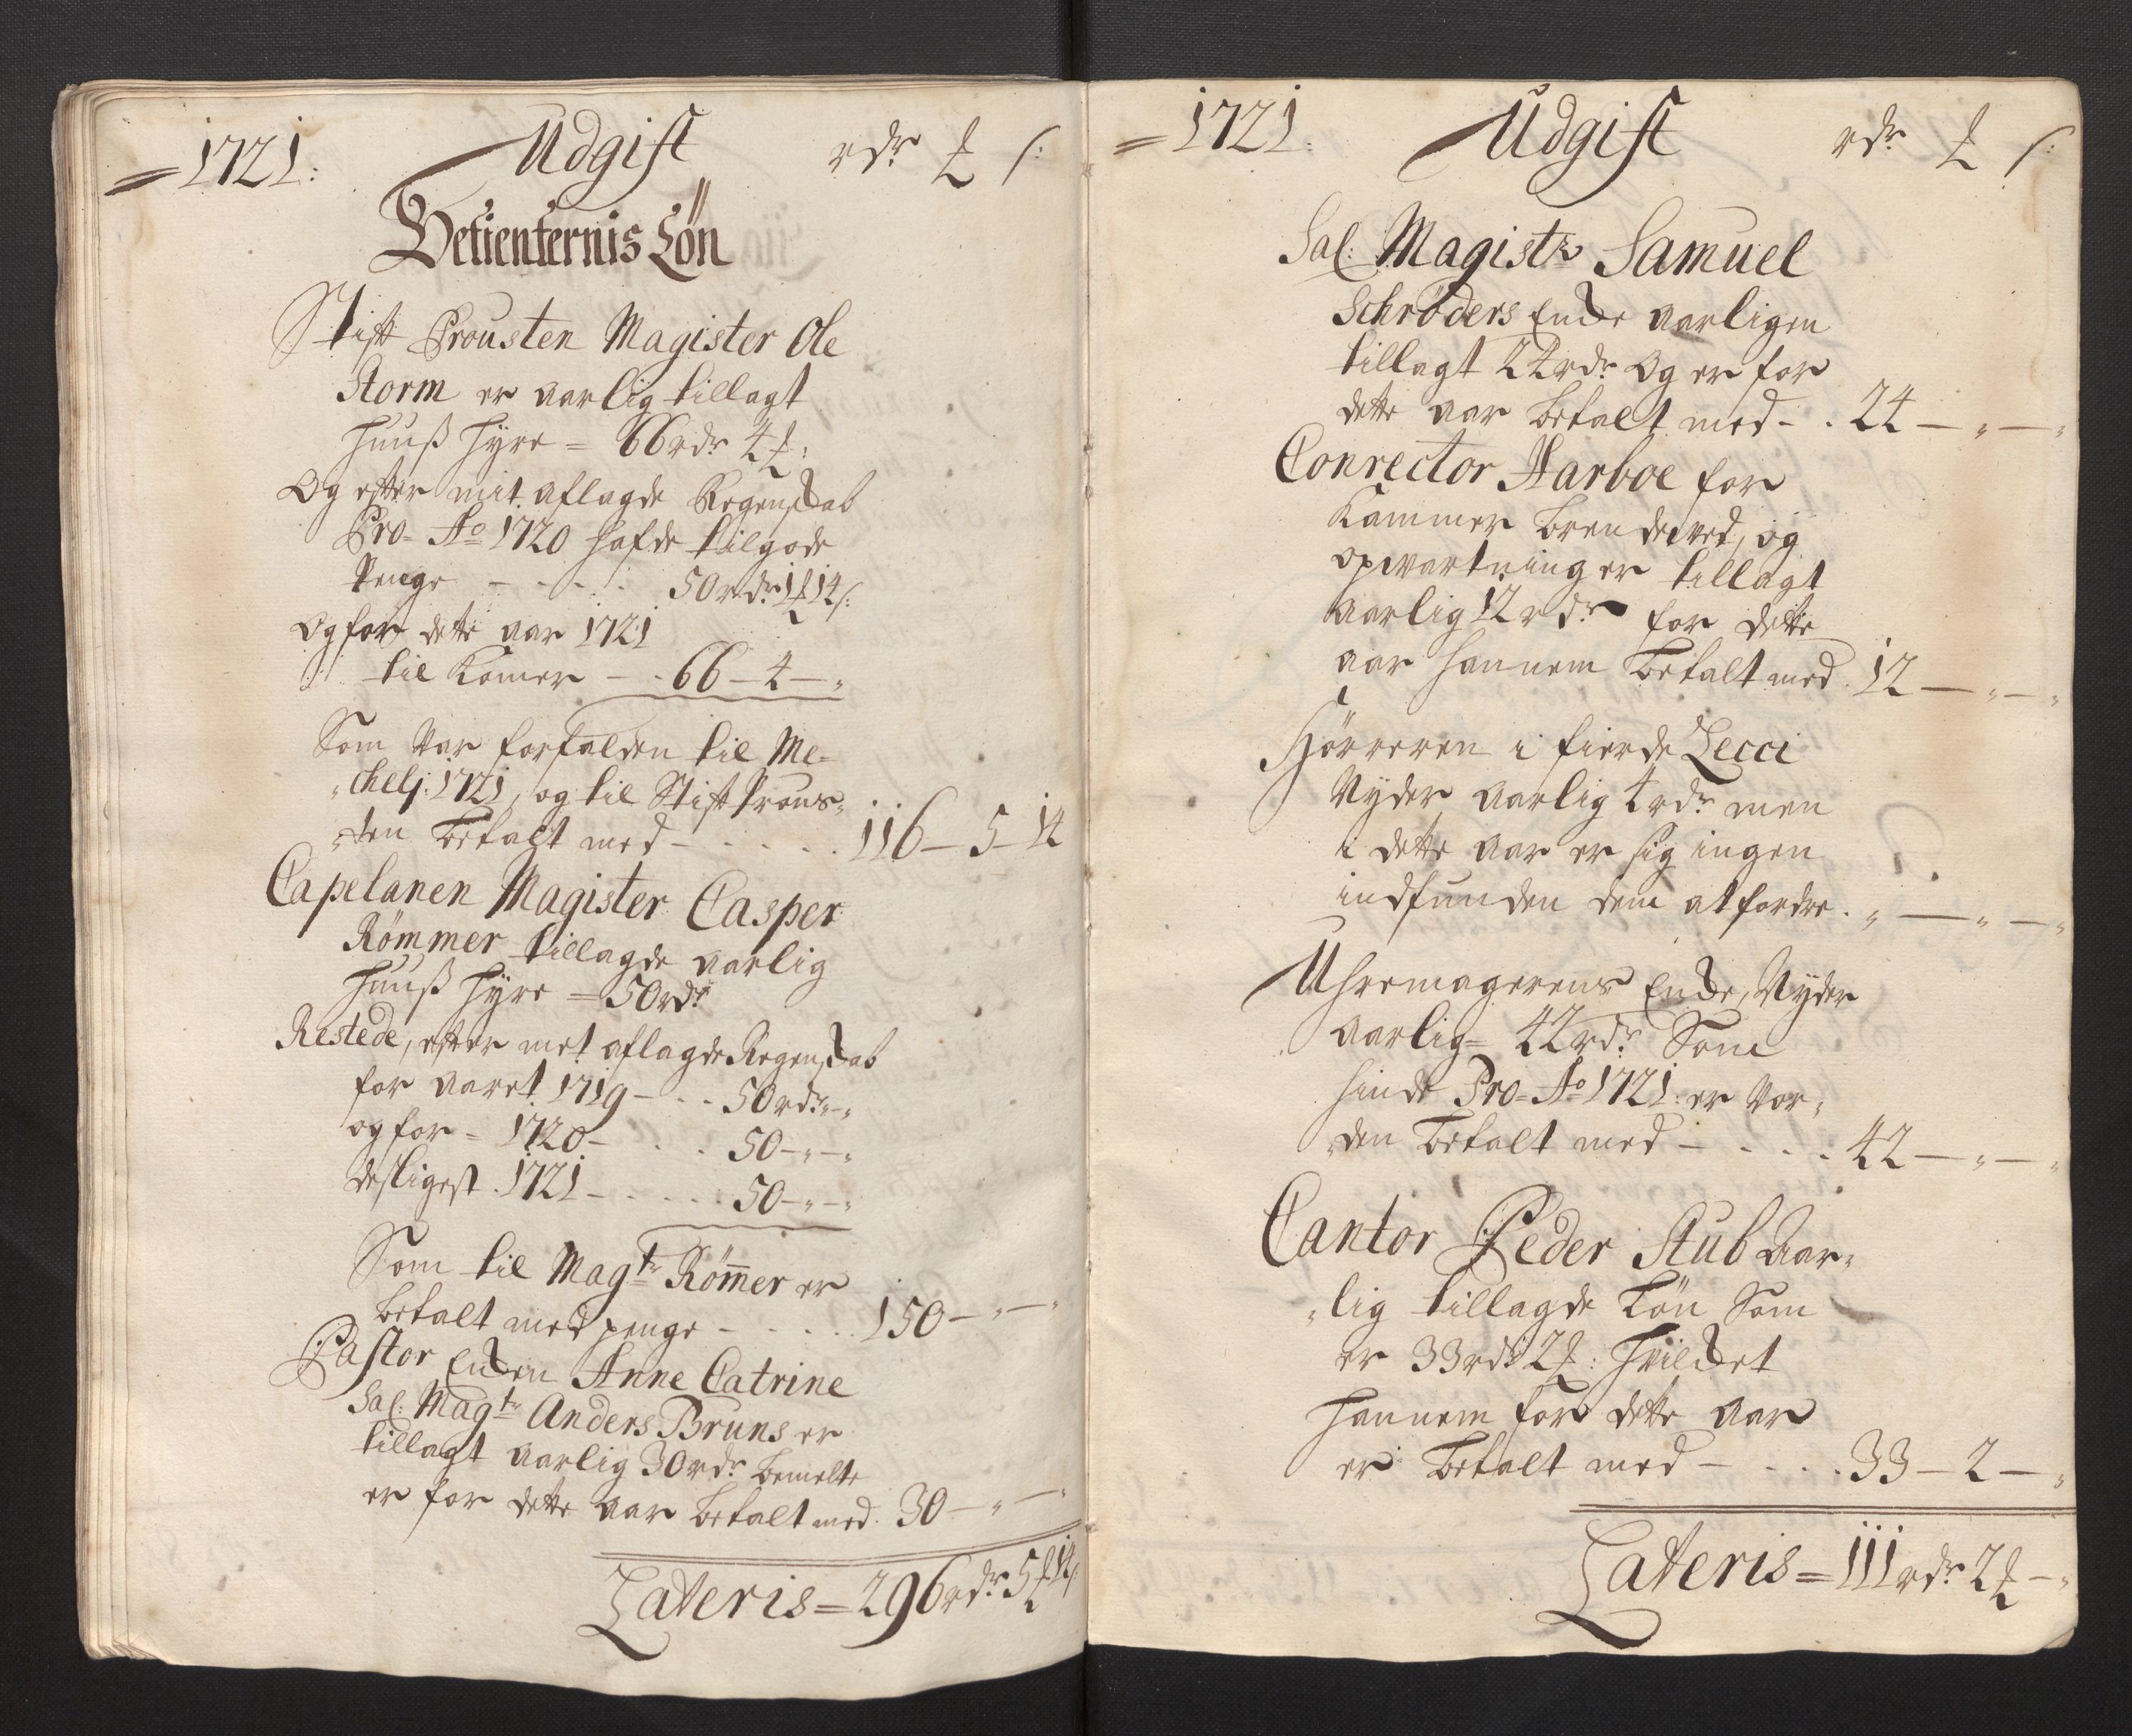 1721: Udgift rdr ₰ s:
Betienternis Lön
Stift Prousten Magister Ole
Storm er aarlig tillagt
huuß hÿre = 66 rdr 4 ₰:
Og efter mit aflagde Regenskab
Pro Ao 1720 hafde tilgode
Penge - - - - 50 rdr 1 ₰ 14 s:
Og for dette aar 1721
til Komer - - 66 - 4 - "
Som Var forfalden til Me=
"chelj: 1721, og til Stift Prous"
"ten betalt med - - - - - 116 - 5 - 14
Capelanen Magister Casper
Römmer tillagde aarlig
huuß hÿre = 50 rdr
Restede, efter met aflagde Regenskab
for aaret 1719 - - - 50 rdr " - "
og for = 1720 - - - 50 - " - "
desligest 1721 - - - - - 50 - " - "
Som til Magtr Röm̄er er
betalt med penge - - - - - 150 - " - "
Pastor Enken Anne Catrine
Sal: Magtr Anders Bruns er
tillagt aarlig 30 rdr bemelte
er for dette aar betalt med 30 - " - "
Lateris = 296 rdr 5 ₰ 14 s:
= 1721: Udgift rdr ₰ s:
Sal: Magistr Samuel
Schröders Enke aarligen
tillagt 24 rdr Og er for
dette aar betalt med - . 24 - " - "
Conrector Harboe for
Kammer brendeved, og
opvartninger tillagt
aarlig 12 rdr for dette
aar hannem betalt med 12 - " - "
Hörreren i fierde Lecci
Nyder aarlig 4 rdr men
i dette aar er sig ingen
indfunden dem at fordre . " - " - "
Uhrmagerens Enke, Nyder
aarlig = 42 rdr Som
hinde Pro = Ao 1721: er Vor"
"den betalt med - - - - 42 - " - "
Cantor Peder Stub Aar"
"lig tillagde Lön Som
er 33 rdr 2 ₰: hvilket
hannem for dette aar
er betalt med - - - - 33 - 2 - "
Lateris = 111 rdr 2 ₰ - "